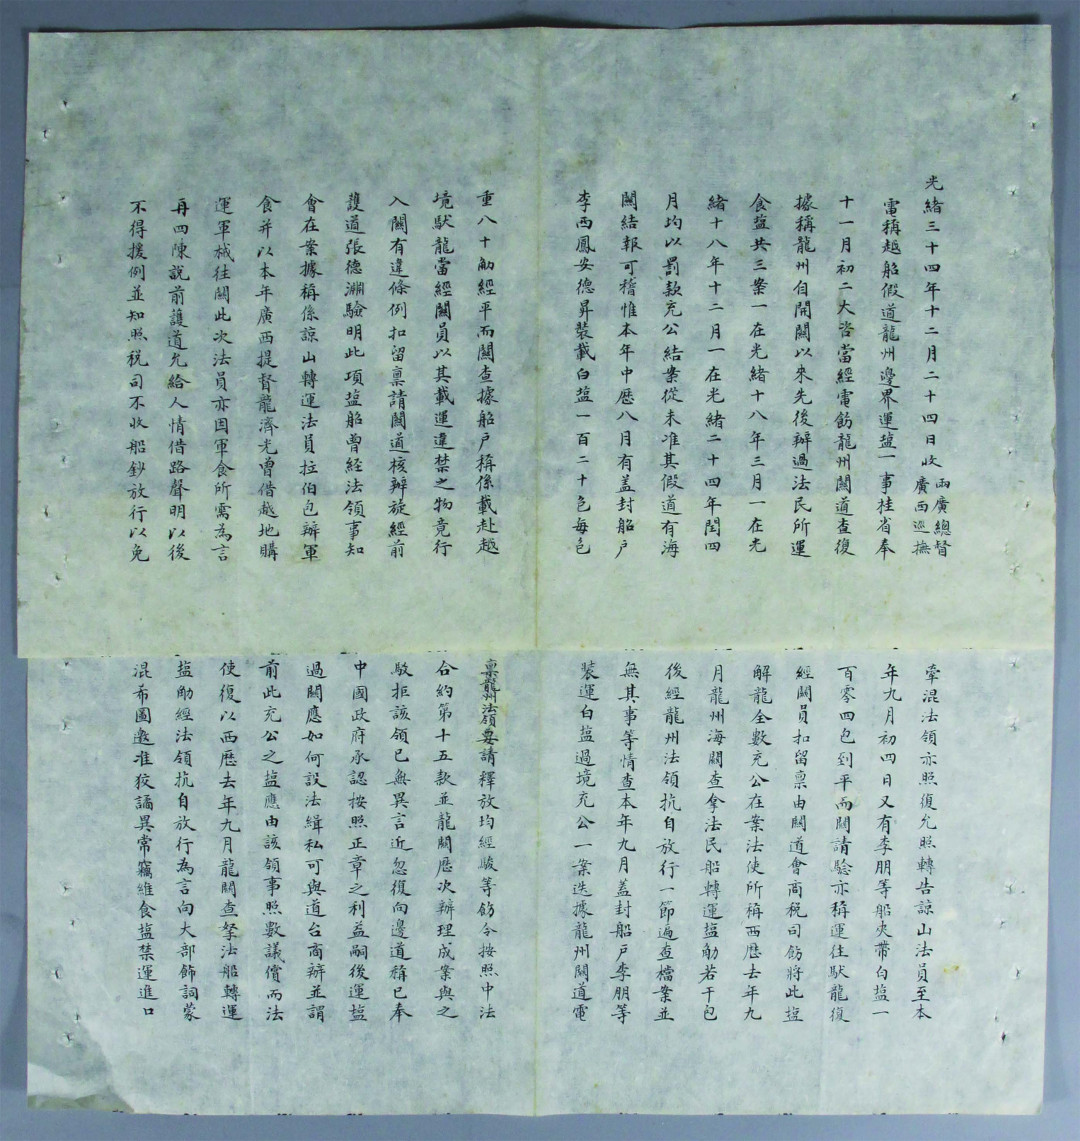 光緒三十四年十二月二十四日收兩廣總督廣西巡撫
電稱越船假道龍州邊界運塩一事桂省奉
十一月初二大咨當經電飭龍州關道查復
據稱龍州自開關以來先後辦過法民所運
食塩共三案一在光緒十八年三月一在光
緒十八年十二月一在光緒二十四年閏四
月均以罰款充公結案從未准其假道有海
關結報可稽惟本年中歷八月有蓋封船戶
李西鳳安德昇裝載白塩一百二十包每包
重八十觔經平而關查據船戶稱係載赴越
境馱龍當經關員以其載運違禁之物竟行
入關有違條例扣留稟請關道核辦旋經前
護道張德淵驗明此項塩船曾經法領事知
會在案據稱係諒山轉運法員拉伯包辦軍
食并以本年廣西提督龍濟光曾借越地購
運軍械往關此次法員亦因軍食所需為言
再四陳說前護道允給人情借路聲明以後
不得援例並知照稅司不收船鈔放行以免
牽混法領亦照復允照轉告諒山法員至本
年九月初四日又有李朋等船夾帶白塩一
百零四包到平而關請驗亦稱運往馱龍復
經關員扣留稟由關道會商稅司飭將此塩
解龍全數充公在案法使所稱西歷去年九
月龍州海關查拿法民船轉運塩觔若干包
後經龍州法領抗自放行一節遍查檔案並
無其事等情查本年九月蓋封船戶李朋等
裝運白塩過境充公一案迭據龍州關道電
稟龍州法領要請釋放均經駿等飭令按照中法
合約第十五款並龍關歷次辦理成案與之
駁拒該領已無異言近忽復向邊道稱已奉
中國政府承認按照正章之利益嗣後運塩
過關應如何設法緝私可與道台商辦並謂
前此充公之塩應由該領事照數議償而法
使復以西歷去年九月龍關查拏法船轉運
塩觔經法領抗自放行為言向大部飾詞蒙
混布圖邀准狡譎異常竊維食塩禁運進口